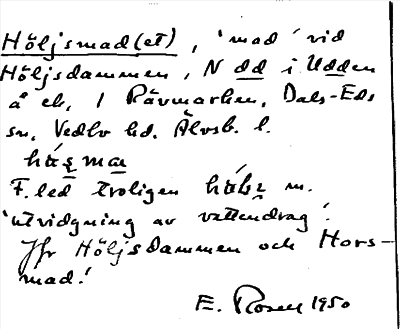 Höljsmad(et), 'mad' vid
Höljsdammen, N dd i Udden
å eb. 1 Rävmarken, Dals-Eds
sn, Vedbo hd. Älvsb. l.
F. led troligen m.
'utvidgning av vattendrag'.
Jfr Höljsdammen och Hors-
mad!
E. Rosell 1950